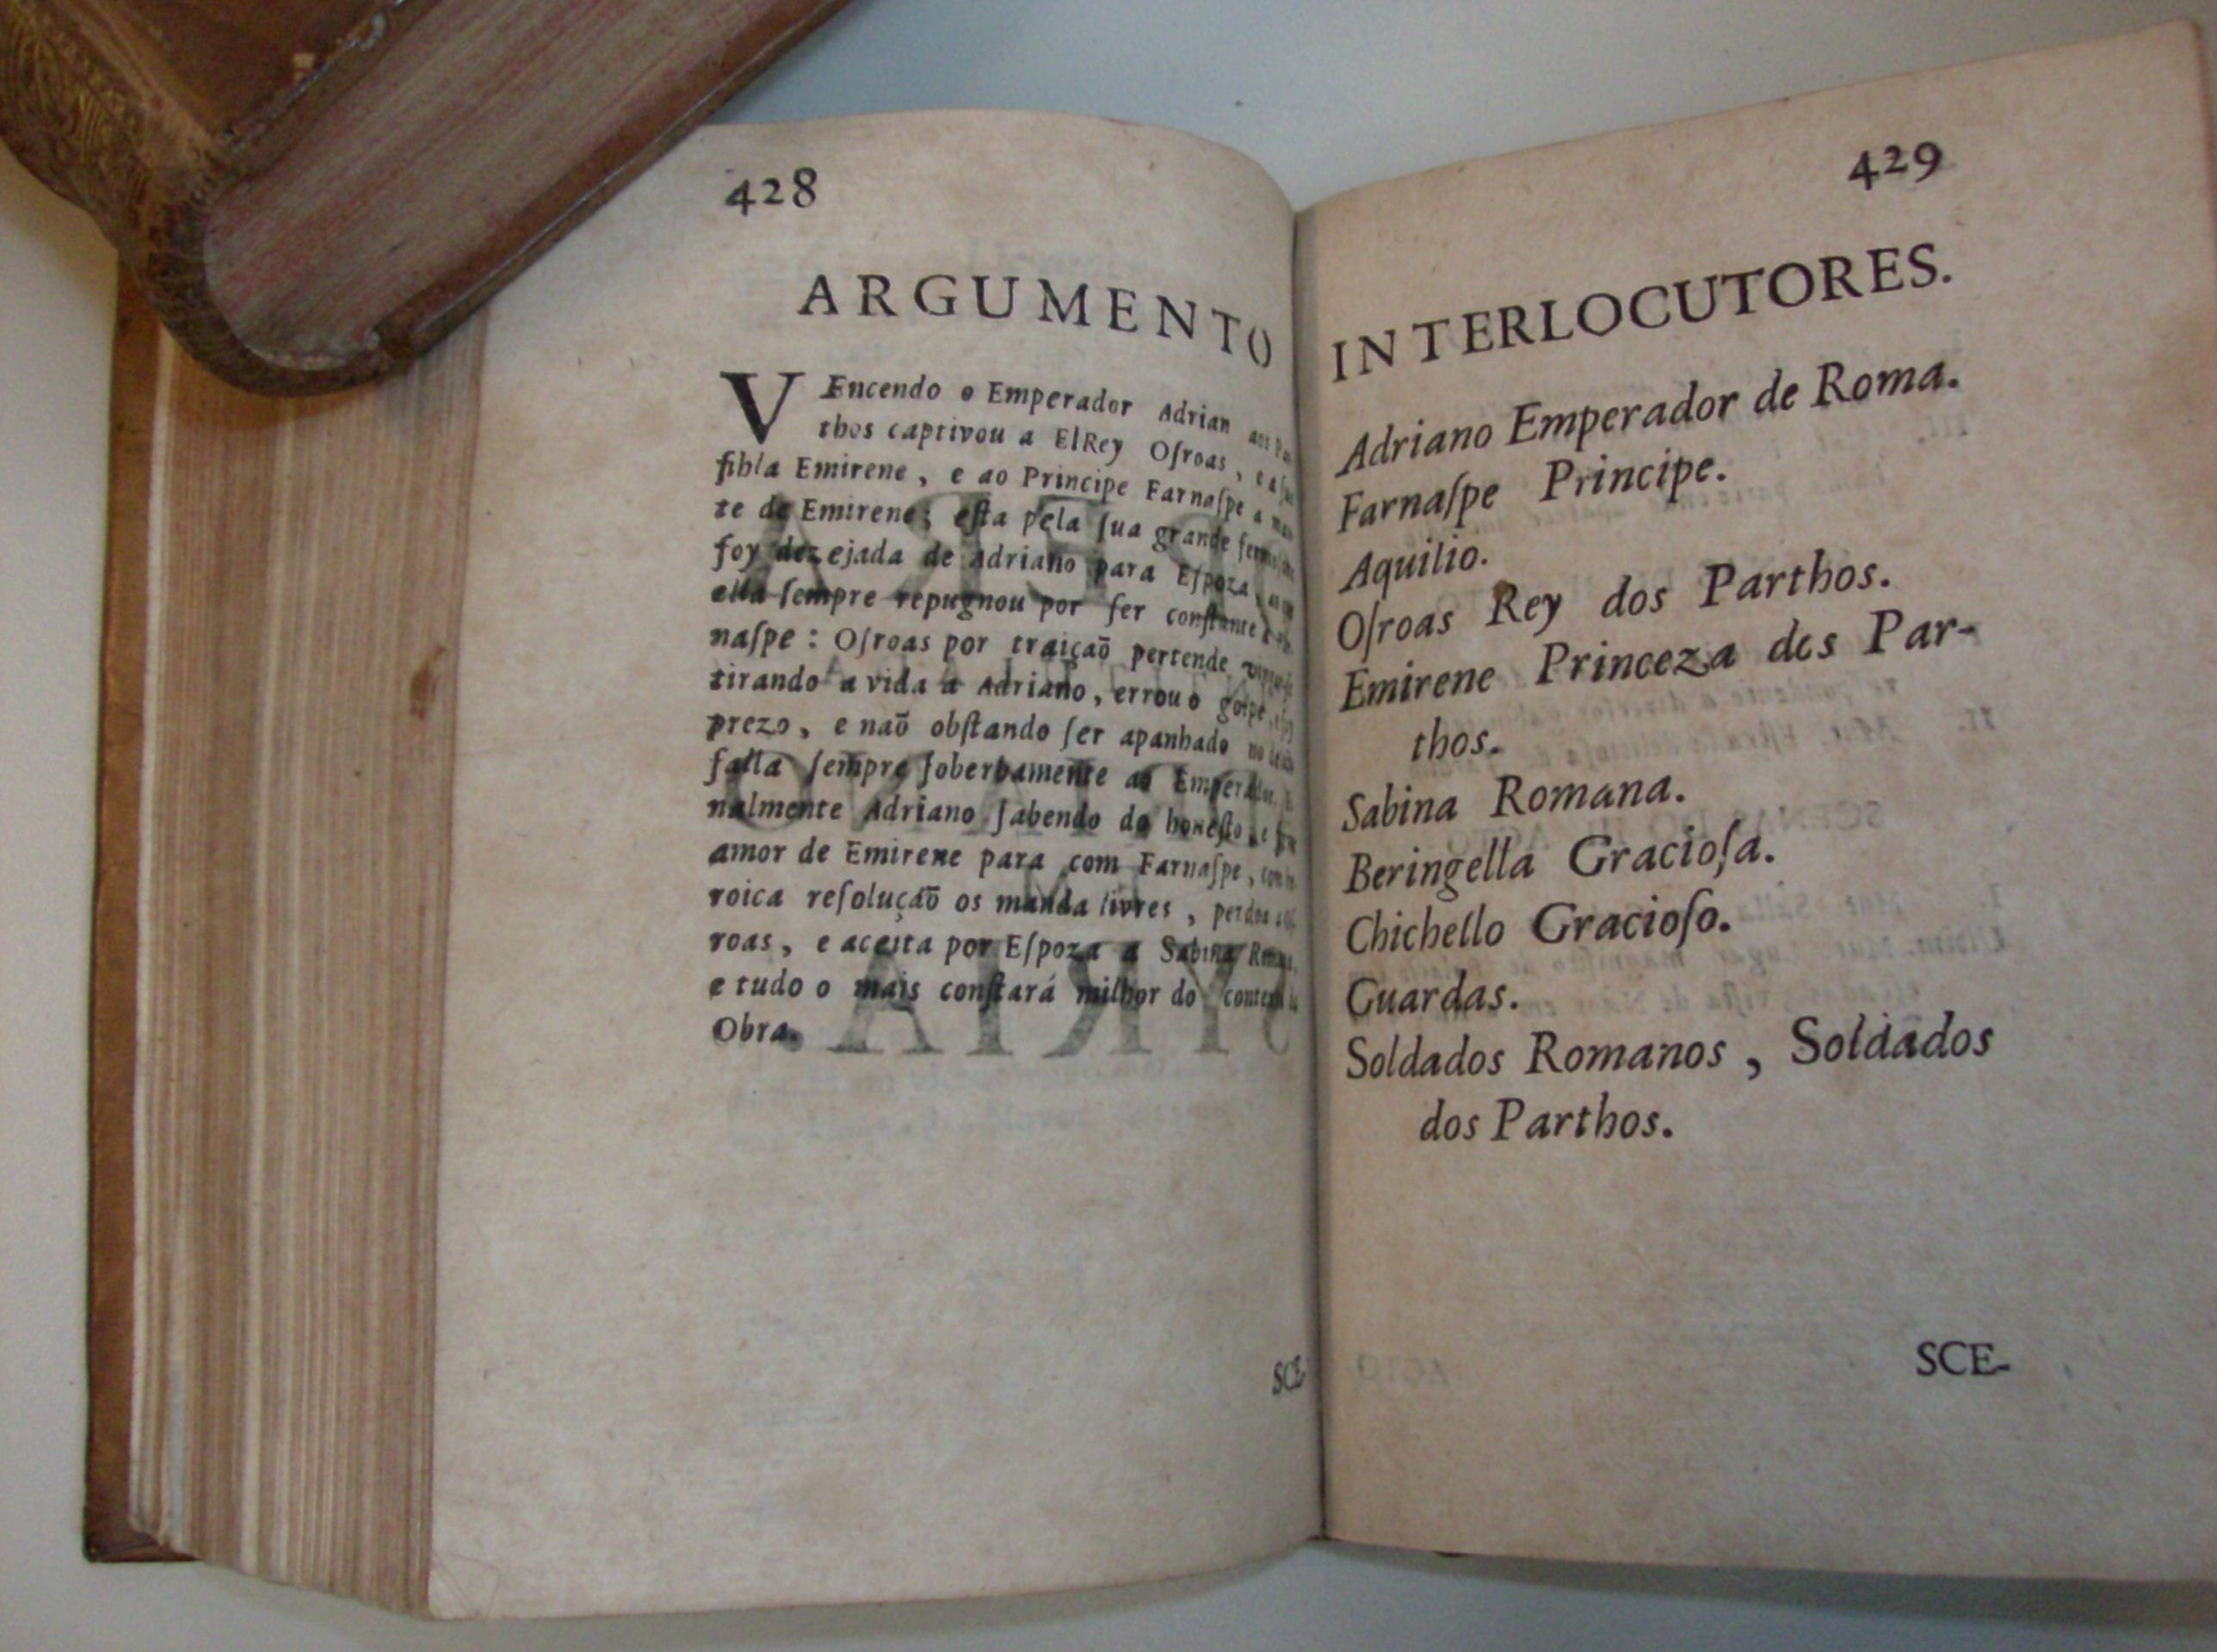 428
ARGUMENTO
VEncendo o Emperador Adrian
thos captivou a ElRey Oſroas, e a
ſibla Emirene, e ao Principe Farnaſpe a
te de Emirene; eſta pela ſua grande
foy dezejada de Adriano para Eſpoza,
ella ſempre repugnou por ſer conſtante
naſpe: Oſroas por traiçaõ pertende
tirando a vida a Adriano, errou o golpe,
prezo, e naõ obſtando ſer apanhado no
falla ſempre ſoberbamente ao
nalmente Adriano ſabendo do honeſto, e
amor de Emirene para com Farnaſpe,
roica reſoluçaõ os manda livres,
roas, e aceita por Eſpoza a Sabina
e tudo o mais conſtará milhor do
Obra.
SCE-
429
INTERLOCUTORES.
Adriano Emperador de Roma.
Farnaſpe Principe.
Aquilio.
Oſroas Rey dos Parthos.
Emirene Princeza dos Par-
thos.
Sabina Romana.
Beringella Gracioſa.
Chichello Gracioſo.
Guardas.
Soldados Romanos, Soldados
dos Parthos.
SCE-